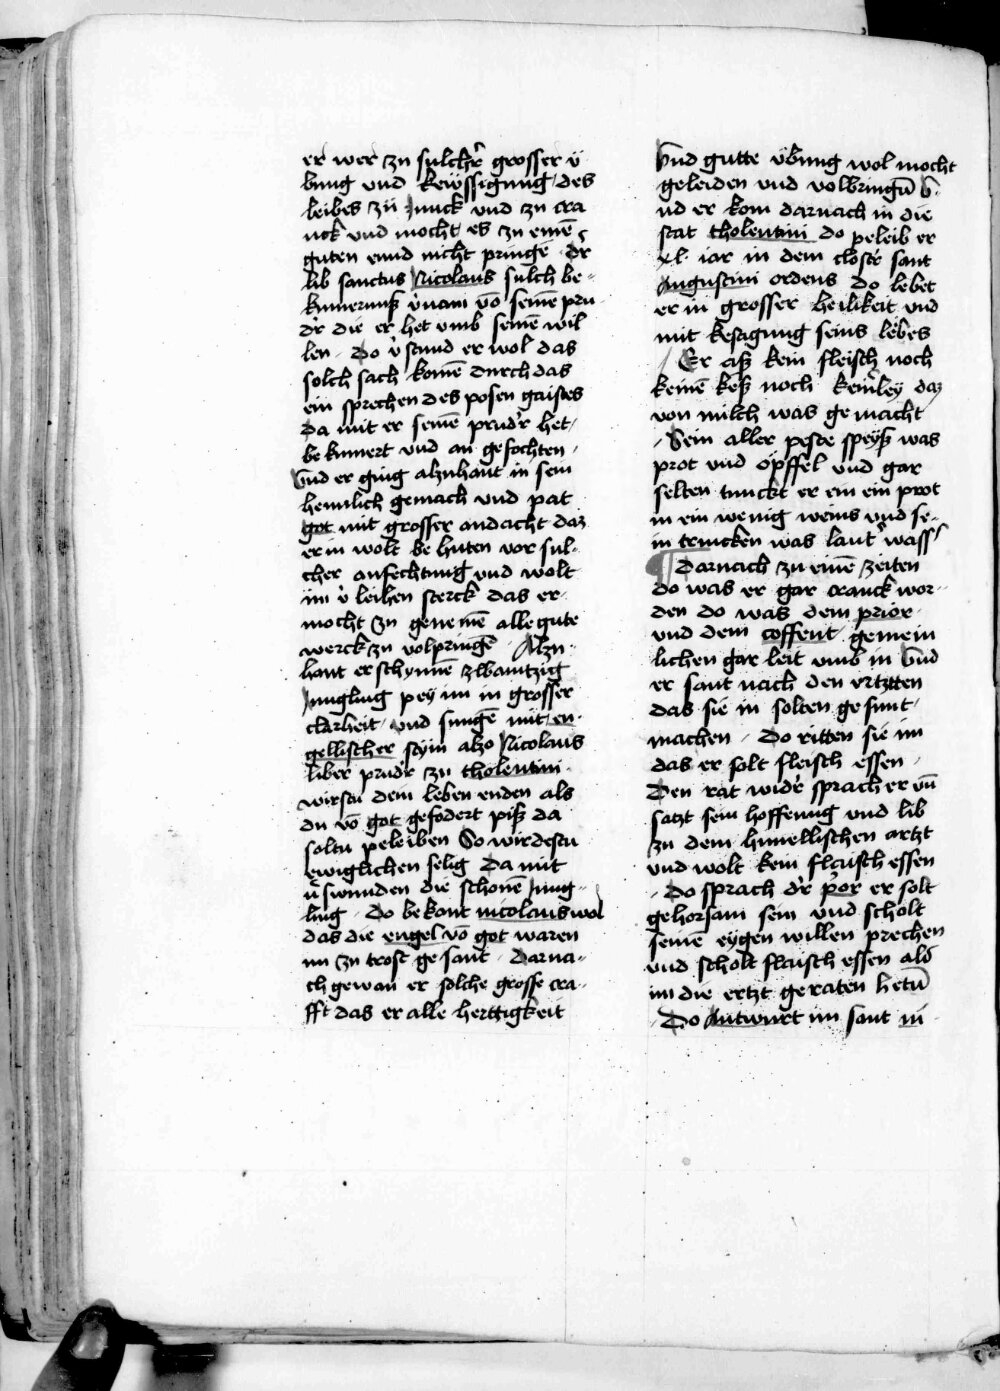 er wer zu sulchr̄ grosser ü
bung vnd kewssigung des
leibes zü Junck vnd zu cra
nck vnd mocht es zu eine͂
guten ennd nicht pringe͂ dr̄
lib sanctus Nicolaus sulch be-
kumernuß v̄nam vo͂ seine͂ pru
dr̄ die er het vmb seine͂ wil
len Do v̄stund er wol das
solch sach kome͂ durch das
ein sprechen des posen gaistes
da mit er seine͂ prudr̄ het
bekumert vnd an gefochten
Vnd er ging alzuhant in sein
heimlich gemach vnd pat
got mit grosser andacht daz
er in wolt behuten vor sul-
cher anfechtung vnd wolt
im v̄leihen sterck das er
mocht zu geneme͂ alle gute
werck zu volpringe͂ Alzu
hant erschynne͂ zwaintzig
Jungling pey im in grosser
clarheit vnd sunge͂ mit en-
gellischer stym also Nicolaus
liber prudr̄ zu tholentini
wirstu dein leben enden als
du vo͂ got gefodert piß da
soltu peleiben So wirdestu
ewiglichen selig Da mit
v̄swunden die schone͂ Jung-
ling Do bekant nicolaus wol
das die engel vo͂ got waren
im zu trost gesant Darna-
ch gewan er solche grosse cra-
fft das er alle herttigkeit
Vnd gutte übung wol mocht
geleiden vnd volbringn̄ V-
nd er kom darnach in die
stat tholentini do peleib er
xl iar in dem clostr̄ sant
Augustini ordens do lebet
er in grosser heilikeit vnd
mit kestigung seins lebes
Er aß kein fleisch noch
keine͂ keß noch keinr̄ley daz
von milch was gemacht
Sein aller peste speyß was
prot vnd öpffel vnd gar
selten tunckt er ein ein prot
in ein wenig weins vnd se-
in trincken was laut̄ wass̄
Darnach zu eine͂ zeiten
do was er gar cranck wor-
den do was dem prior
vnd dem coffent gemein
lichen gar leit vmb in Vnd
er sant nach den vrtztten
das sie in solten gesunt
machen Do ritten sie im
das er solt fleisch essen
Den rat widr̄ sprach er vn̄
satzt sein hoffenug vnd lib
zu dem himellischen artzt
vnd wolt kein flaisch essen
Do sprach dr̄ p̄or er solt
gehorsam sein vnd scholt
seine͂ eygen willen prechen
vnd scholt flaisch essen als
im die ertzt geraten hetn̄
Do Antwurt im sant ni